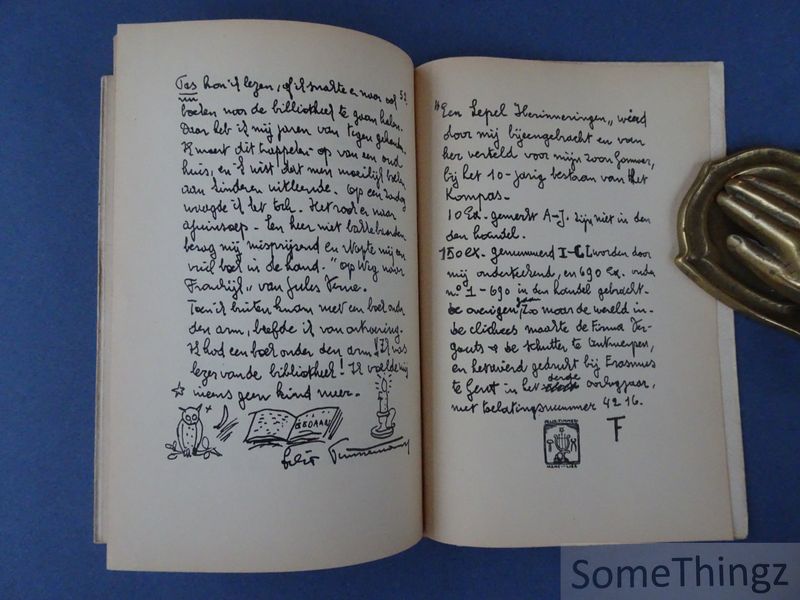 Pas kon ik lezen, of ik snakte er naar om
52.
boeken voor de bibliotheek te gaan halen.
Daar heb ik mij jaren van tegen gehouden.
Ik moest dit trappeken op van een oud
huis, en ik wist dat men moeilijk boeken
aan kinderen uitleende. Op een zondag
waagde ik het toch. Het rook er naar
ajuinsoep. Een heer met bakkebaarden
bezag mij misprijzend en stopte mij een
vuil boek in de hand. "Op weg naar
Frankrijk" van Jules Verne.
Toen ik buiten kwam met een boek onder
den arm, beefde ik van ontroering.
Ik had een boek onder den arm! Ik was
lezer van de bibliotheek! Ik voelde mij
ineens geen kind meer.
GEDAAN
Felix Timmermans
"Een Lepel Herinneringen" werd
door mij bijeengebracht en van
her verteld voor mijn zoon Gommer,
bij het 10-jarig bestaan van Het
Kompas.
10 Ex. gemerkt A-J. zijn niet in den
den handel.
150 ex. genummerd I-CL worden door
mij onderteekend, en 690 Ex. onder
n° 1-690 in den handel gebracht.
de overigen gaan zoo maar de wereld in.
de clichees maakte de Firma Ver-
gouts & de Schutter te Antwerpen,
en het werd gedrukt bij Erasmus
te Gent in het derde oorlogjaar,
met toelatingsnummer 4216.
F
SomeThingz